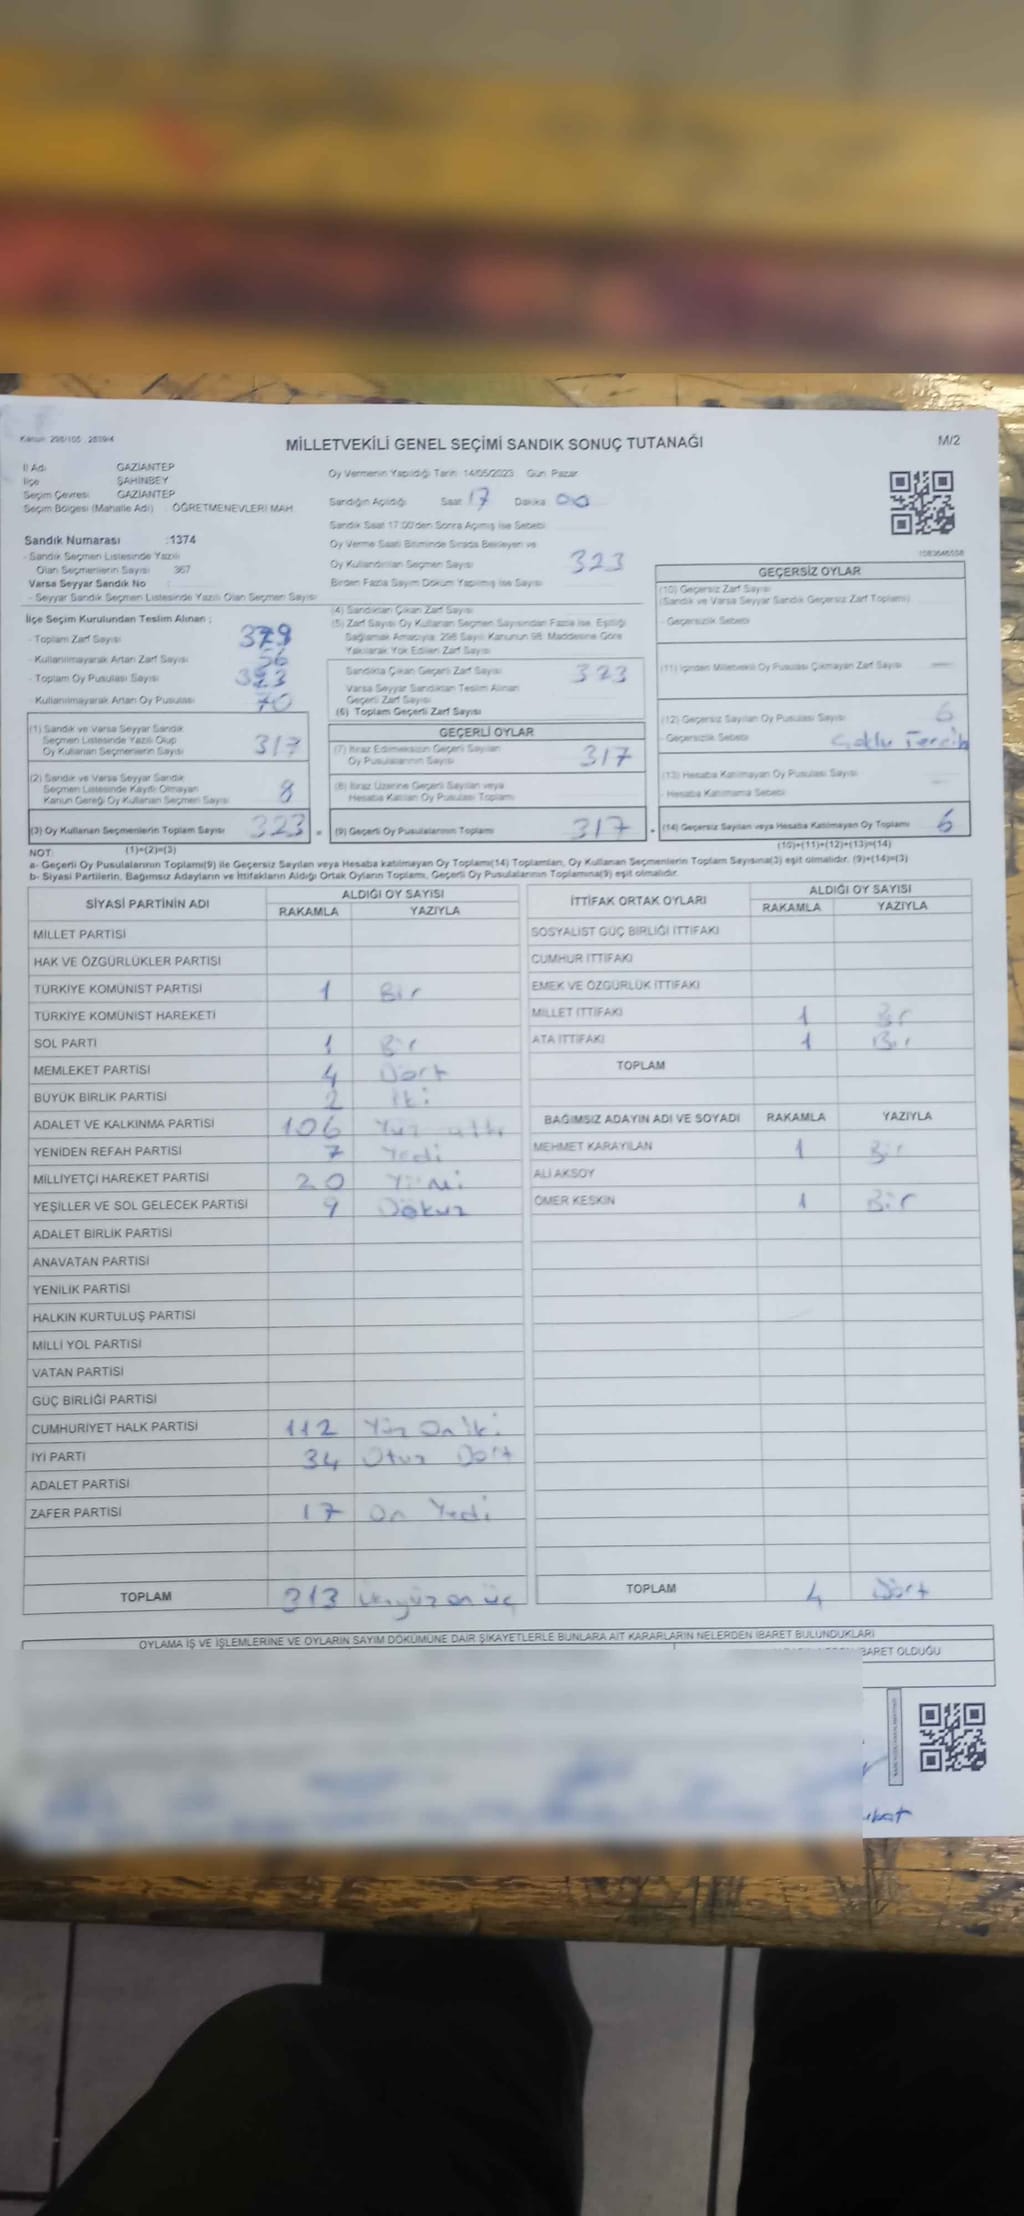 Kanun: 298/105 - 2839/4
MİLLETVEKİLİ GENEL SEÇİMİ SANDIK SONUÇ TUTANAĞI
M/2
İl Adı GAZİANTEP
İlçe ŞAHİNBEY
Seçim Çevresi GAZİANTEP
Seçim Bölgesi (Mahalle Adı) : ÖĞRETMENEVLERİ MAH.
Sandık Numarası :1374
- Sandık Seçmen Listesinde Yazılı
Olan Seçmenlerin Sayısı 367
Varsa Seyyar Sandık No
- Seyyar Sandık Seçmen Listesinde Yazılı Olan Seçmen Sayısı
Oy Vermenin Yapıldığı Tarih: 14/05/2023 Gün: Pazar
Sandığın Açıldığı Saat 17 Dakika 00
Sandık Saat 17:00'den Sonra Açılmış İse Sebebi
Oy Verme Saati Bitiminde Sırada Bekleyen ve
Oy Kullandırılan Seçmen Sayısı 323
Birden Fazla Sayım Döküm Yapılmış İse Sayısı
İlçe Seçim Kurulundan Teslim Alınan ;
- Toplam Zarf Sayısı 379
- Kullanılmayarak Artan Zarf Sayısı 56
- Toplam Oy Pusulası Sayısı
- Kullanılmayarak Artan Oy Pusulası 70
(1) Sandık ve Varsa Seyyar Sandık
Seçmen Listesinde Yazılı Olup
Oy Kullanan Seçmenlerin Sayısı 317
(2) Sandık ve Varsa Seyyar Sandık
Seçmen Listesinde Kayıtlı Olmayan
Kanun Gereği Oy Kullanan Seçmen Sayısı 8
(3) Oy Kullanan Seçmenlerin Toplam Sayısı 323
(1)+(2)=(3)
(4) Sandıktan Çıkan Zarf Sayısı
(5) Zarf Sayısı Oy Kullanan Seçmen Sayısından Fazla ise, Eşitliği
Sağlamak Amacıyla, 298 Sayılı Kanunun 98. Maddesine Göre
Yakılarak Yok Edilen Zarf Sayısı
Sandıkta Çıkan Geçerli Zarf Sayısı 323
Varsa Seyyar Sandıktan Teslim Alınan
Geçerli Zarf Sayısı
(6) Toplam Geçerli Zarf Sayısı
GEÇERLİ OYLAR
(7) İtiraz Edilmeksizin Geçerli Sayılan
Oy Pusulalarının Sayısı 317
(8) İtiraz Üzerine Geçerli Sayılan veya
Hesaba Katılan Oy Pusulası Toplamı
(9) Geçerli Oy Pusulalarının Toplamı 317
GEÇERSİZ OYLAR
(10) Geçersiz Zarf Sayısı
(Sandık ve Varsa Seyyar Sandık Geçersiz Zarf Toplamı)
- Geçersizlik Sebebi
(11) İçinden Milletvekili Oy Pusulası Çıkmayan Zarf Sayısı —
(12) Geçersiz Sayılan Oy Pusulası Sayısı 6
- Geçersizlik Sebebi Çoklu Tercih
(13) Hesaba Katılmayan Oy Pusulası Sayısı —
- Hesaba Katılmama Sebebi
(14) Geçersiz Sayılan veya Hesaba Katılmayan Oy Toplamı 6
(10)+(11)+(12)+(13)=(14)
NOT:
a- Geçerli Oy Pusulalarının Toplamı(9) ile Geçersiz Sayılan veya Hesaba katılmayan Oy Toplamı(14) Toplamları, Oy Kullanan Seçmenlerin Toplam Sayısına(3) eşit olmalıdır. (9)+(14)=(3)
b- Siyasi Partilerin, Bağımsız Adayların ve İttifakların Aldığı Ortak Oyların Toplamı, Geçerli Oy Pusulalarının Toplamına(9) eşit olmalıdır.
SİYASİ PARTİNİN ADI ALDIĞI OY SAYISI
RAKAMLA YAZIYLA
MİLLET PARTİSİ
HAK VE ÖZGÜRLÜKLER PARTİSİ
TÜRKİYE KOMÜNİST PARTİSİ 1 Bir
TÜRKİYE KOMÜNİST HAREKETİ
SOL PARTİ 1 Bir
MEMLEKET PARTİSİ 4 Dört
BÜYÜK BİRLİK PARTİSİ 2 İki
ADALET VE KALKINMA PARTİSİ 106 Yüz altı
YENİDEN REFAH PARTİSİ 7 Yedi
MİLLİYETÇİ HAREKET PARTİSİ 20 Yirmi
YEŞİLLER VE SOL GELECEK PARTİSİ 9 Dokuz
ADALET BİRLİK PARTİSİ
ANAVATAN PARTİSİ
YENİLİK PARTİSİ
HALKIN KURTULUŞ PARTİSİ
MİLLİ YOL PARTİSİ
VATAN PARTİSİ
GÜÇ BİRLİĞİ PARTİSİ
CUMHURİYET HALK PARTİSİ 112 Yüz On iki
İYİ PARTİ 34 Otuz Dört
ADALET PARTİSİ
ZAFER PARTİSİ 17 On Yedi
TOPLAM 313 Üçyüz on üç
İTTİFAK ORTAK OYLARI ALDIĞI OY SAYISI
RAKAMLA YAZIYLA
SOSYALİST GÜÇ BİRLİĞİ İTTİFAKI
CUMHUR İTTİFAKI
EMEK VE ÖZGÜRLÜK İTTİFAKI
MİLLET İTTİFAKI 1 Bir
ATA İTTİFAKI 1 Bir
TOPLAM
BAĞIMSIZ ADAYIN ADI VE SOYADI RAKAMLA YAZIYLA
MEHMET KARAYILAN 1 Bir
ALİ AKSOY
ÖMER KESKİN 1 Bir
TOPLAM 4 Dört
OYLAMA İŞ VE İŞLEMLERİNE VE OYLARIN SAYIM DÖKÜMÜNE DAİR ŞİKAYETLERLE BUNLARA AİT KARARLARIN NELERDEN İBARET BULUNDUKLARI
İBARET OLDUĞU